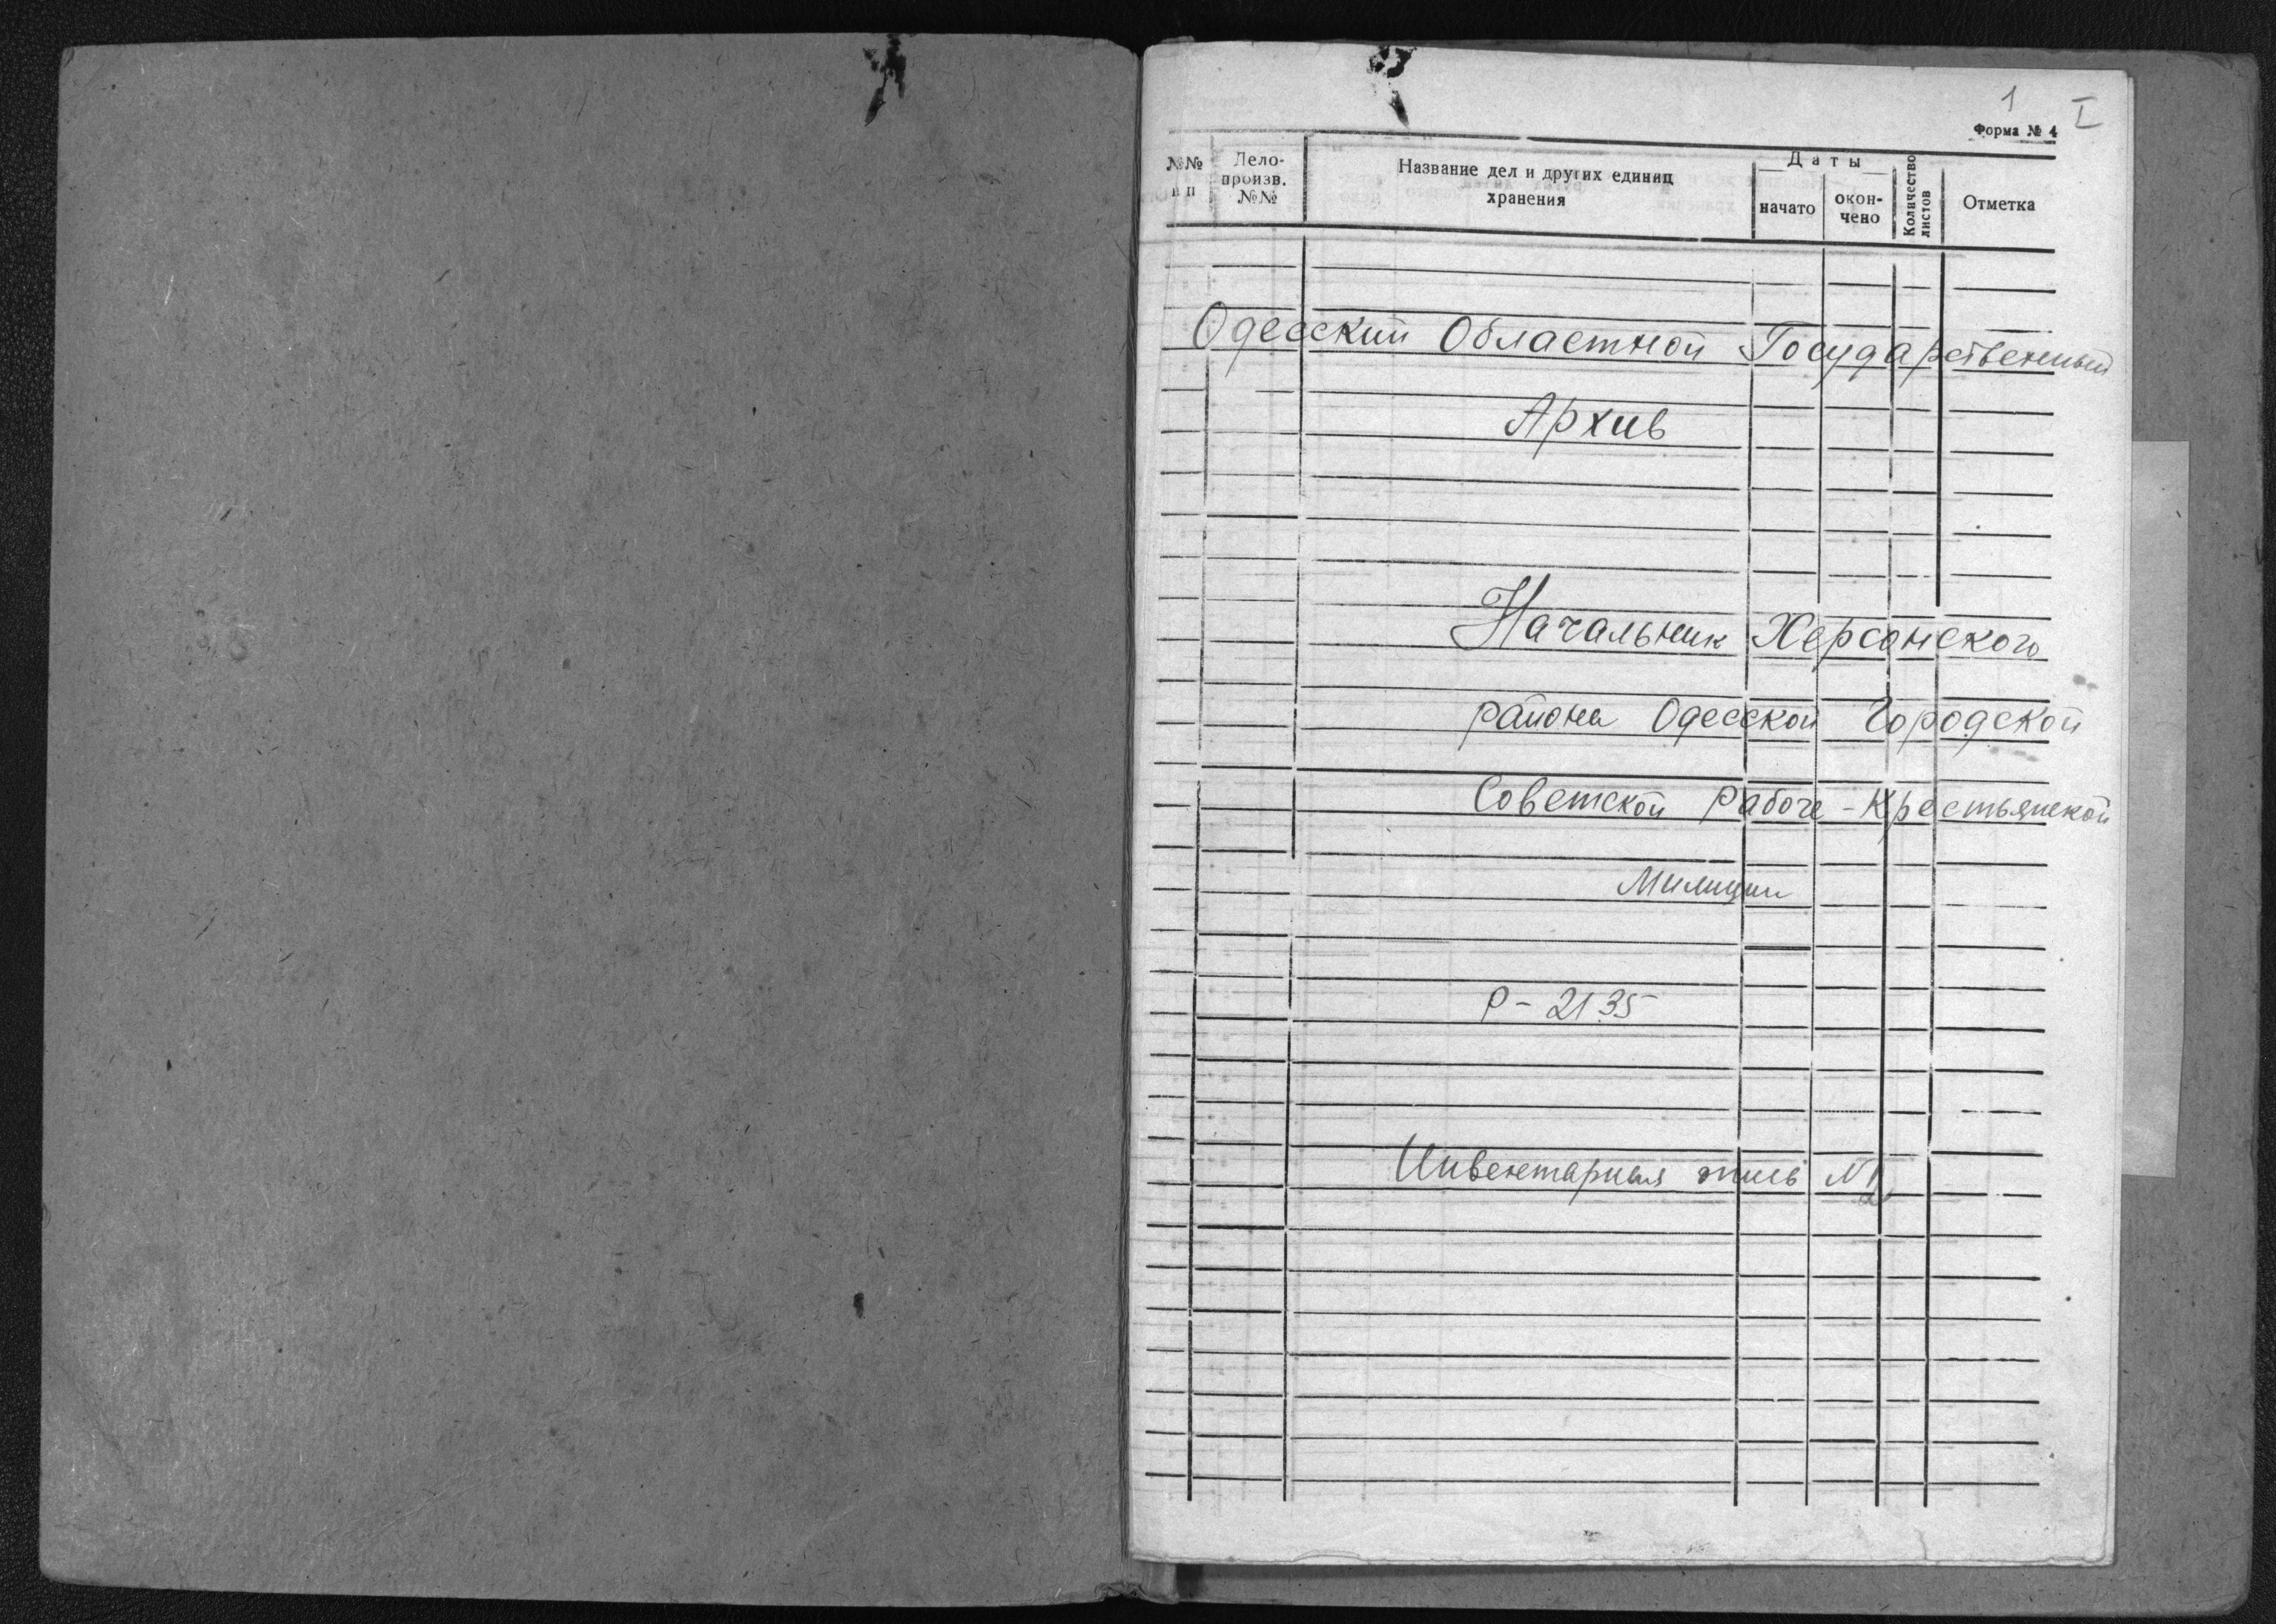 1 I
Форма № 4
№№ п п
Дело-произв. №№
Название дел и других единиц
хранения
Даты
начато
окон-
чено
Количество листов
Отметка
Одесский Областной Государственный
Архив
Начальник Херсонского
района Одесской Городской
Советской Рабоче-Крестьянской
Милиции
Р-2135
Инвентарная опись №